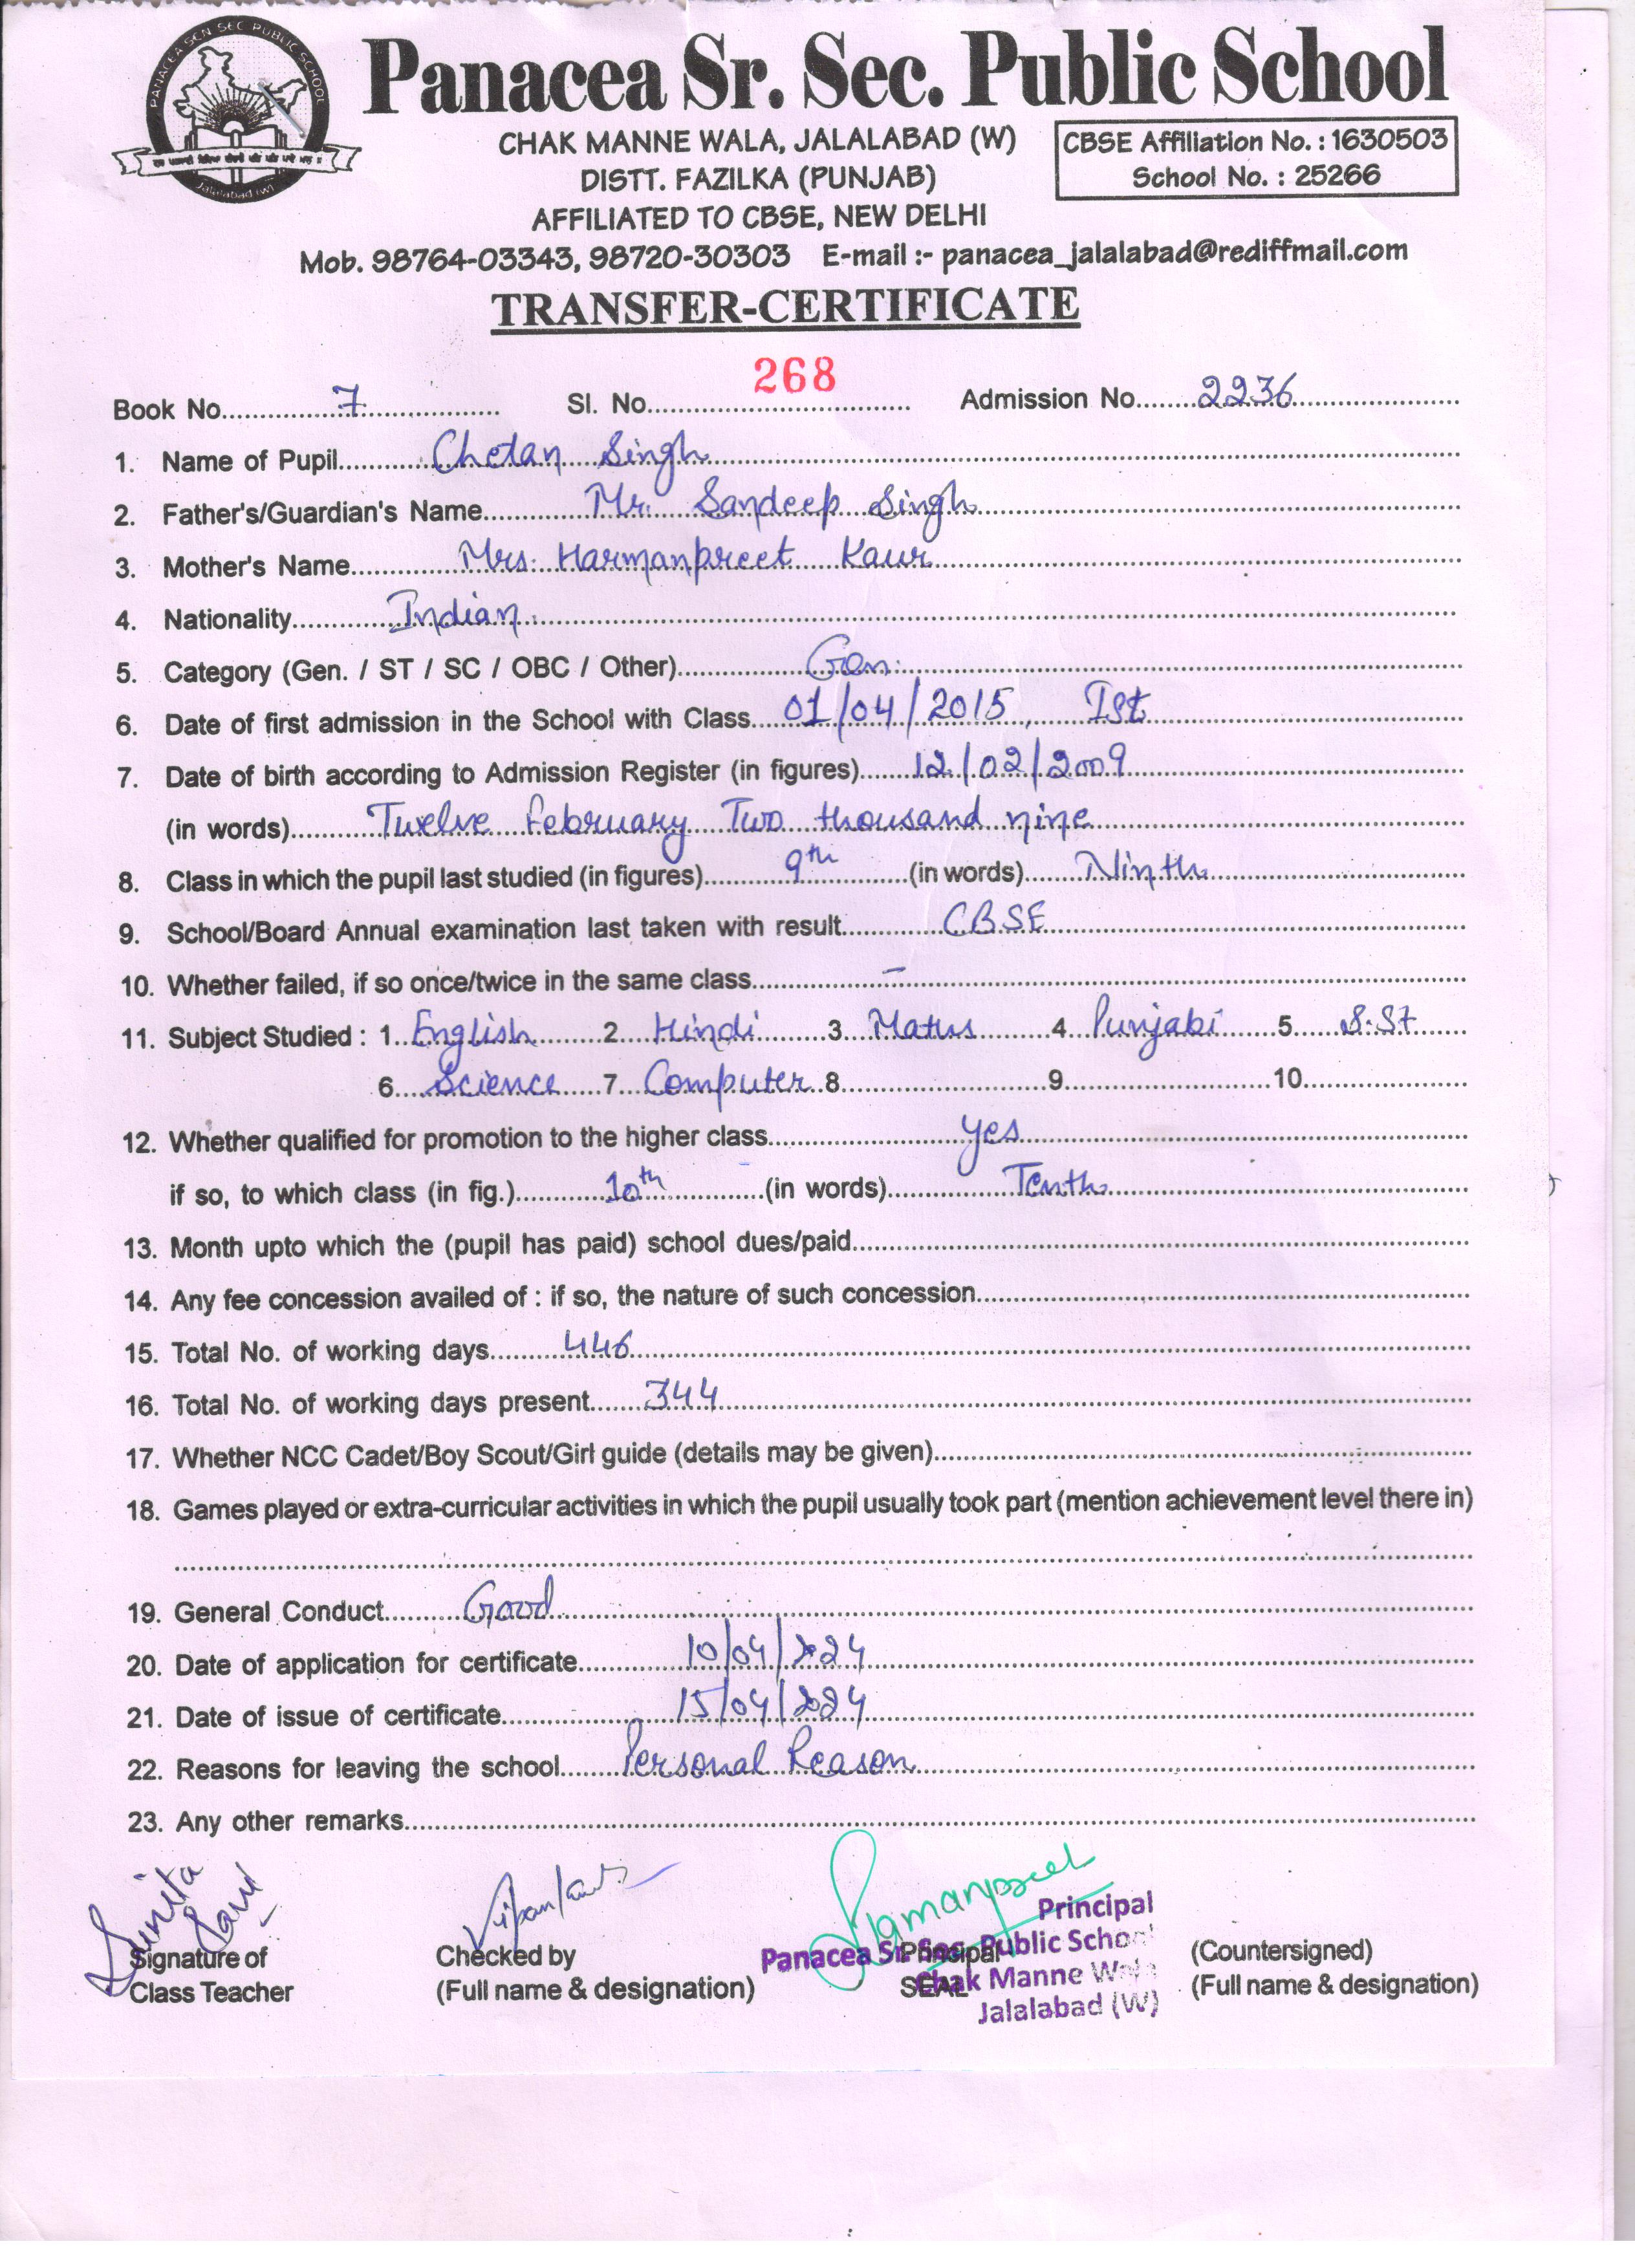 PANACEA SEN SEC PUBLIC SCHOOL
Jalalabad (W)
Panacea Sr. Sec. Public School
CHAK MANNE WALA, JALALABAD (W)
DISTT. FAZILKA (PUNJAB)
AFFILIATED TO CBSE, NEW DELHI
CBSE Affiliation No. : 1630503
School No. : 25266
Mob. 98764-03343, 98720-30303 E-mail :- panacea_jalalabad@rediffmail.com
TRANSFER-CERTIFICATE
Book No. 7 Sl. No. 268 Admission No. 2236
1. Name of Pupil Chetan Singh
2. Father's/Guardian's Name Mr. Sandeep Singh
3. Mother's Name Mrs. Harmanpreet Kaur
4. Nationality Indian
5. Category (Gen. / ST / SC / OBC / Other) Gen.
6. Date of first admission in the School with Class 01/04/2015, Ist
7. Date of birth according to Admission Register (in figures) 12/02/2009
(in words) Twelve february Two thousand nine
8. Class in which the pupil last studied (in figures) 9th (in words) Ninth
9. School/Board Annual examination last taken with result CBSE
10. Whether failed, if so once/twice in the same class –
11. Subject Studied : 1. English 2. Hindi 3. Maths 4. Punjabi 5. S.St
6. Science 7. Computer 8. 9. 10.
12. Whether qualified for promotion to the higher class yes
if so, to which class (in fig.) 10th (in words) Tenth
13. Month upto which the (pupil has paid) school dues/paid
14. Any fee concession availed of : if so, the nature of such concession
15. Total No. of working days 446
16. Total No. of working days present 344
17. Whether NCC Cadet/Boy Scout/Girl guide (details may be given)
18. Games played or extra-curricular activities in which the pupil usually took part (mention achievement level there in)
19. General Conduct Good
20. Date of application for certificate 10/04/2024
21. Date of issue of certificate 15/04/2024
22. Reasons for leaving the school Personal Reason
23. Any other remarks
Sunita Rani
Signature of
Class Teacher
Checked by
(Full name & designation)
Principal
SEAL
Principal
Panacea Sr. Sec. Public School
Chak Manne Wala
Jalalabad (W)
(Countersigned)
(Full name & designation)